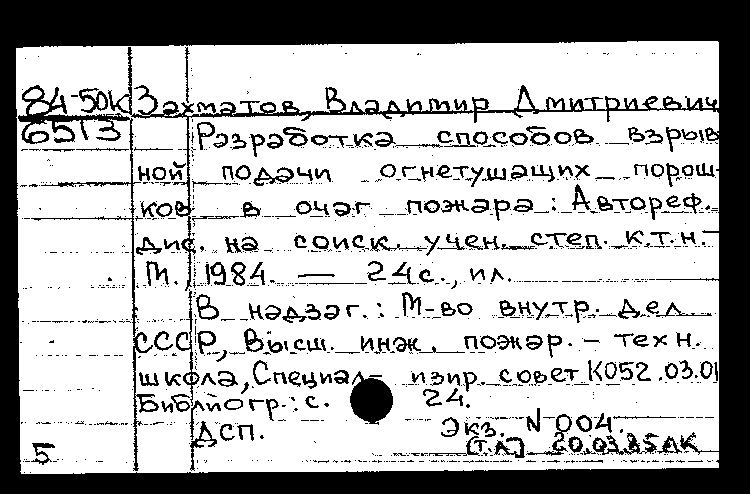 84-50к Захматов, Владимир Дмитриевич
6513 Разработка способов взрыв
ной подачи огнетушащих порош-
ков в очаг пожара : Автореф.
дис. на соиск. учен. степ. к.т.н. -
М., 1984. — 24 с., ил.
В надзаг.: М-во внутр. дел
СССР, Высш. инж. пожар. - техн.
школа, Специал- изир. совет К052.03.01
Библиогр.: с. 24.
ДСП. Экз. N 004.
5 [Т.А] 20.03.85 АК